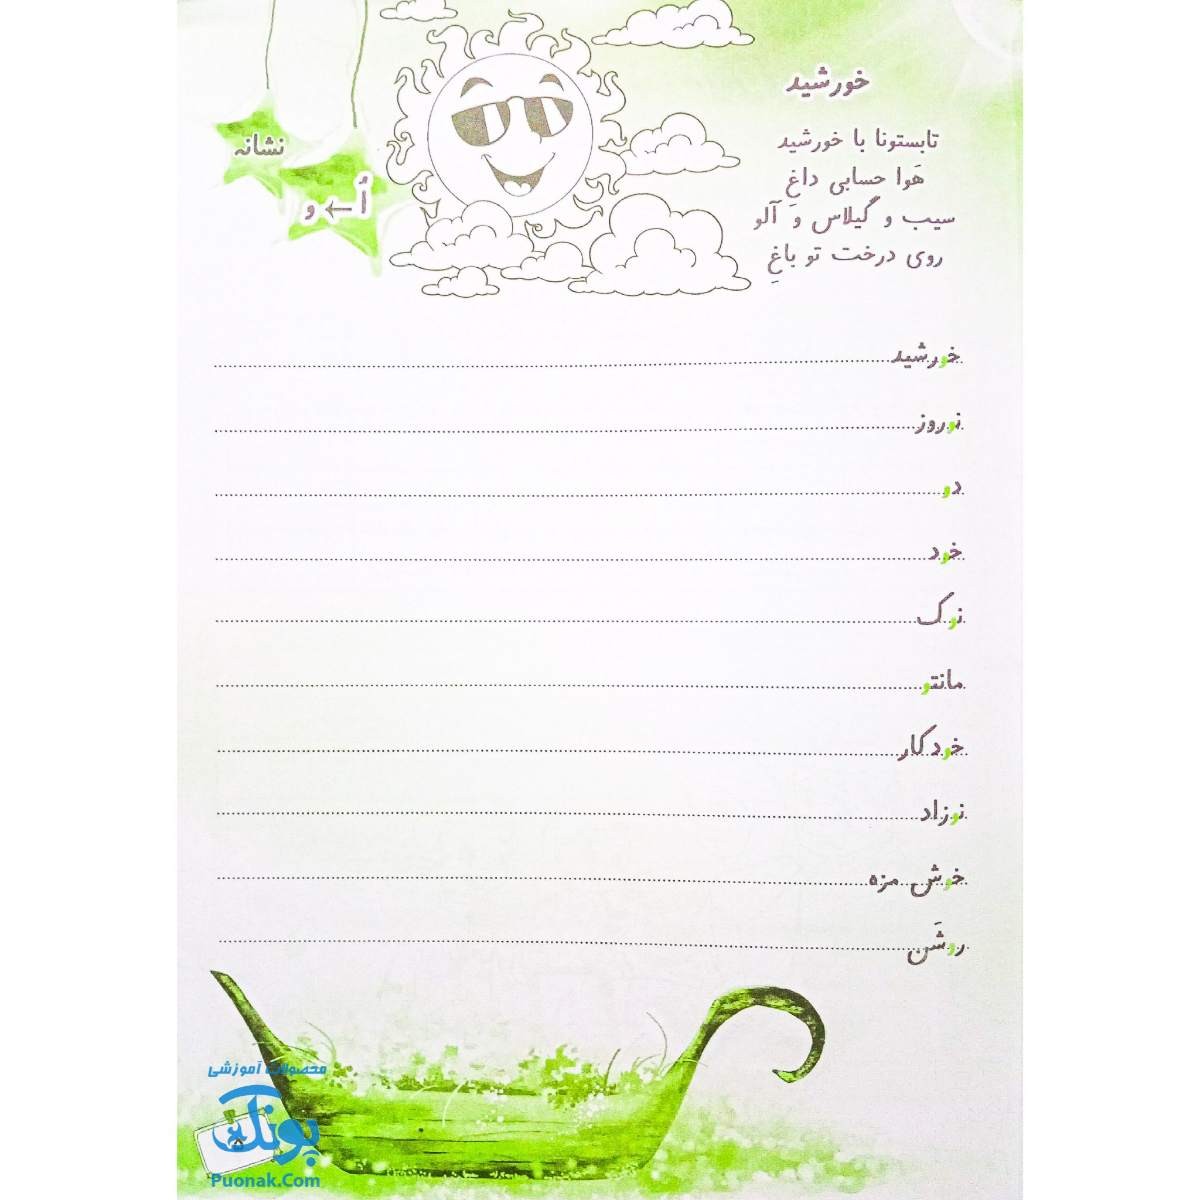 خورشید
تابستونا با خورشید
هَوا حسابی داغِ
سیب و گیلاس و آلو
روی درخت تو باغِ
نشانه
اُ ← و
خورشید
نوروز
دو
خود
نوک
مانتو
خودکار
نوزاد
خوش مزه
روشَن
محصولات آموزشی
پونک
Puonak.Com